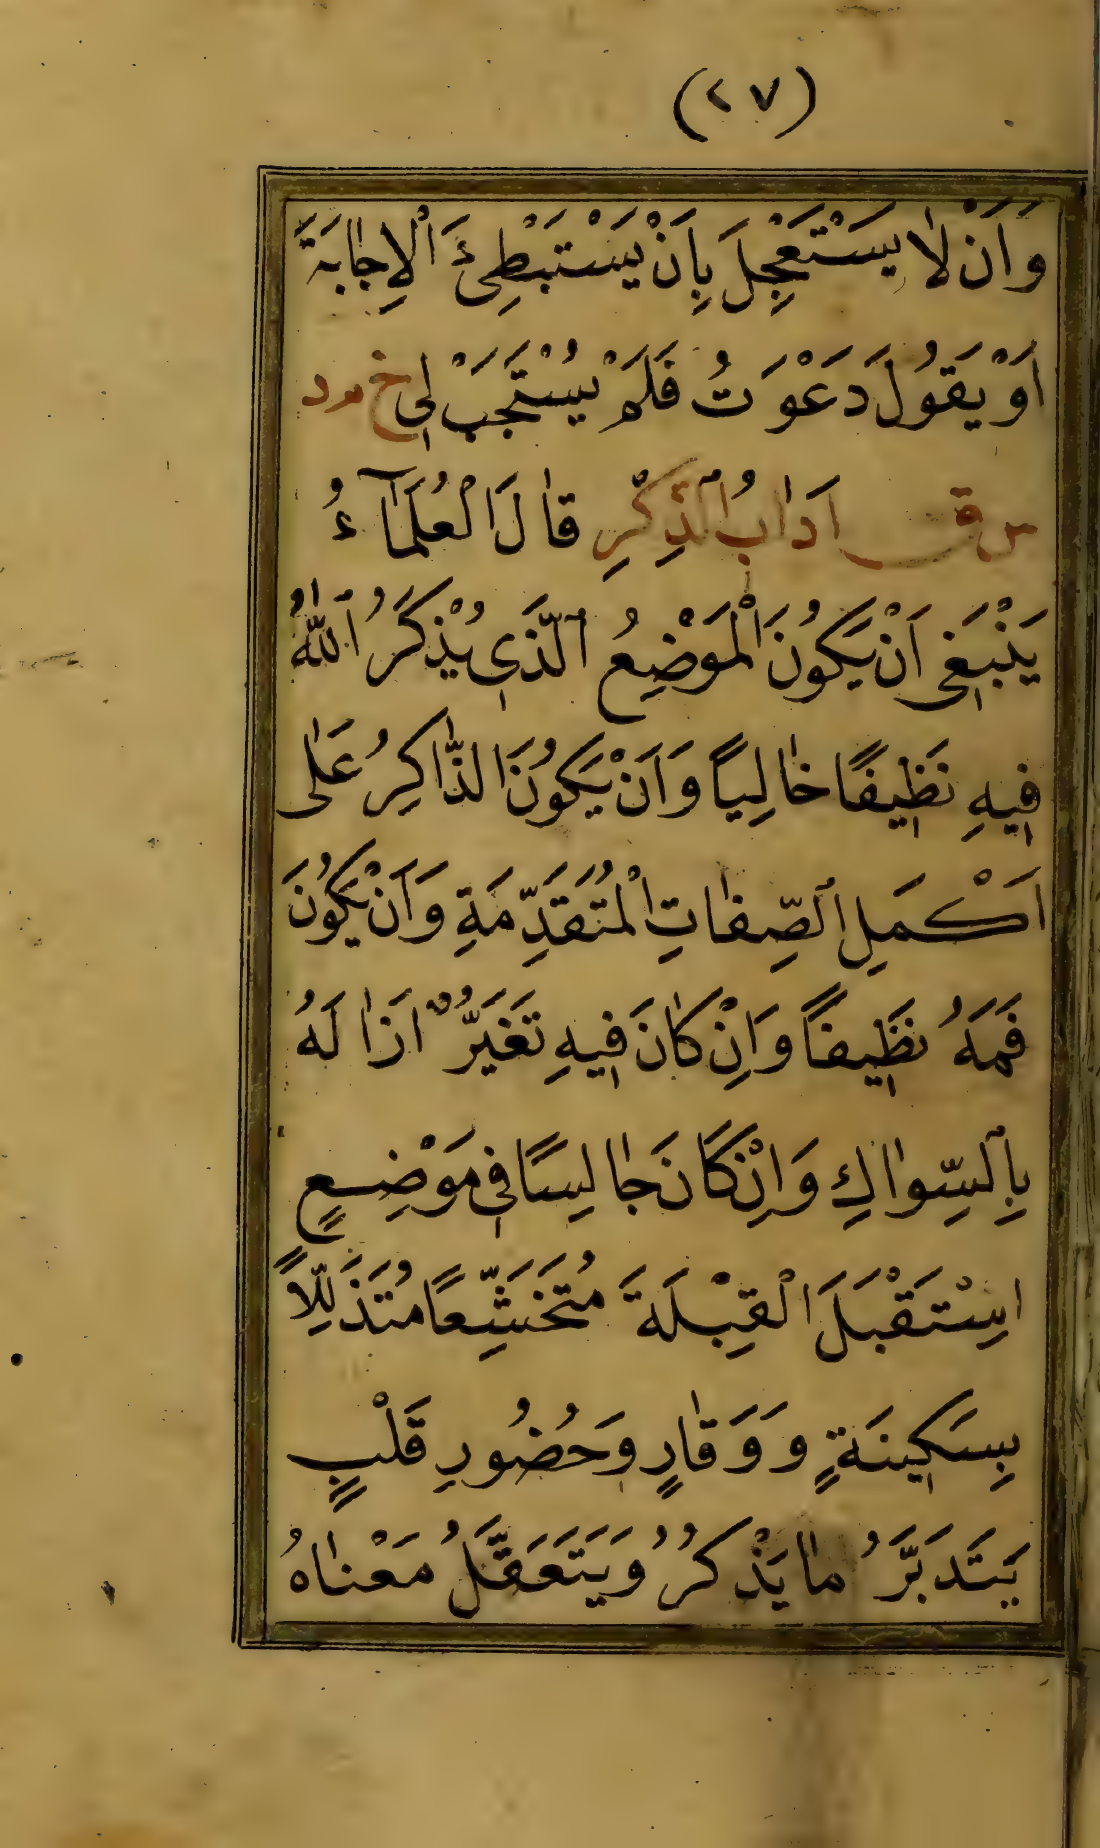 (٢٧)
وَاَنْ لَا يَسْتَعْجِلَ بِاَنْ يَسْتَبْطِئَ الْاِجَابَةَ
اَوْ يَقُولَ دَعَوْتُ فَلَمْ يُسْتَجَبْ لِى خ م د
س ق اٰدَابُ الذِّكْرِ قَالَ الْعُلَمَآءُ
يَنْبَغِى اَنْ يَكُونَ الْمَوْضِعُ الَّذِى يُذْكَرُ اللّٰهُ
فِيهِ نَظِيفًا خَالِيًا وَاَنْ يَكُونَ الذَّاكِرُ عَلٰى
اَكْمَلِ الصِّفَاتِ الْمُتَقَدِّمَةِ وَاَنْ يَكُونَ
فَمُهُ نَظِيفًا وَاِنْ كَانَ فِيهِ تَغَيُّرٌ اَزَالَهُ
بِالسِّوَاكِ وَاِنْ كَانَ جَالِسًا فِى مَوْضِعٍ
اِسْتَقْبَلَ الْقِبْلَةَ مُتَخَشِّعًا مُتَذَلِّلًا
بِسَكِينَةٍ وَوَقَارٍ وَحُضُورِ قَلْبٍ
يَتَدَبَّرُ مَا يَذْكُرُ وَيَتَعَقَّلُ مَعْنَاهُ